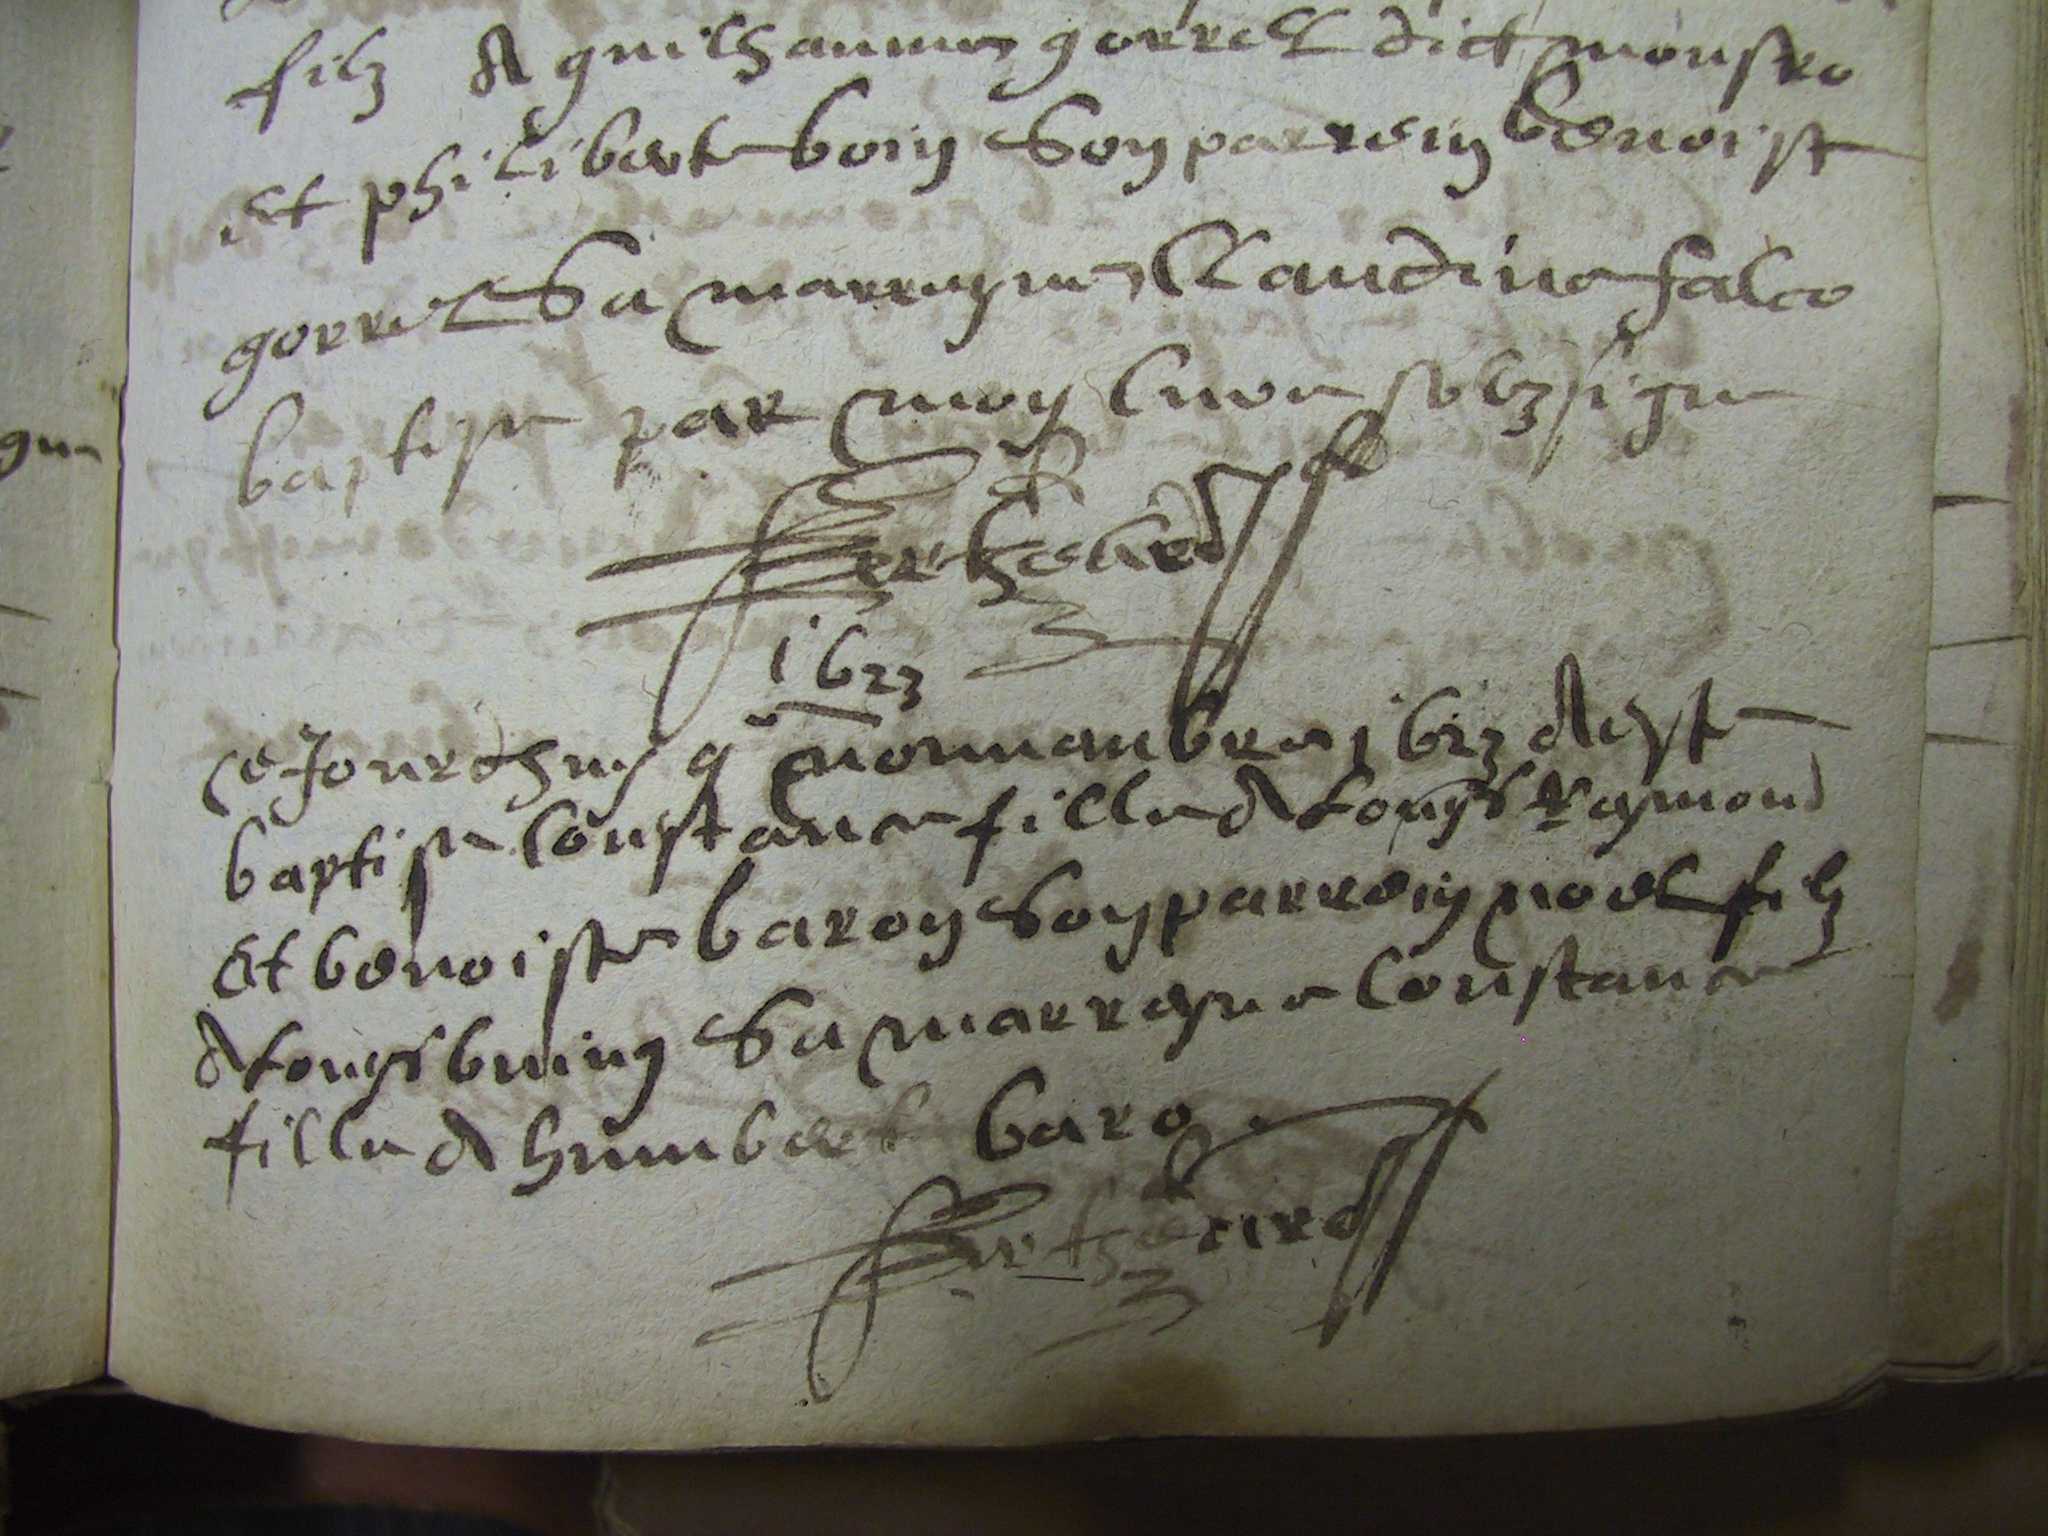 filz de guilhaume gorrell dict monsro
et philiberte boin son parrein benoist
gorrel sa marreyne Claudine falco
baptise par moy cure soubzsigne
1623
ce Jourdhuy 9 novenbre 1623 a est
baptise Constance fille de Lonys Raymond
et benoiste baron son parrein noel filz
de Lonys bruin sa marreyne Constance
fille de humbert baro